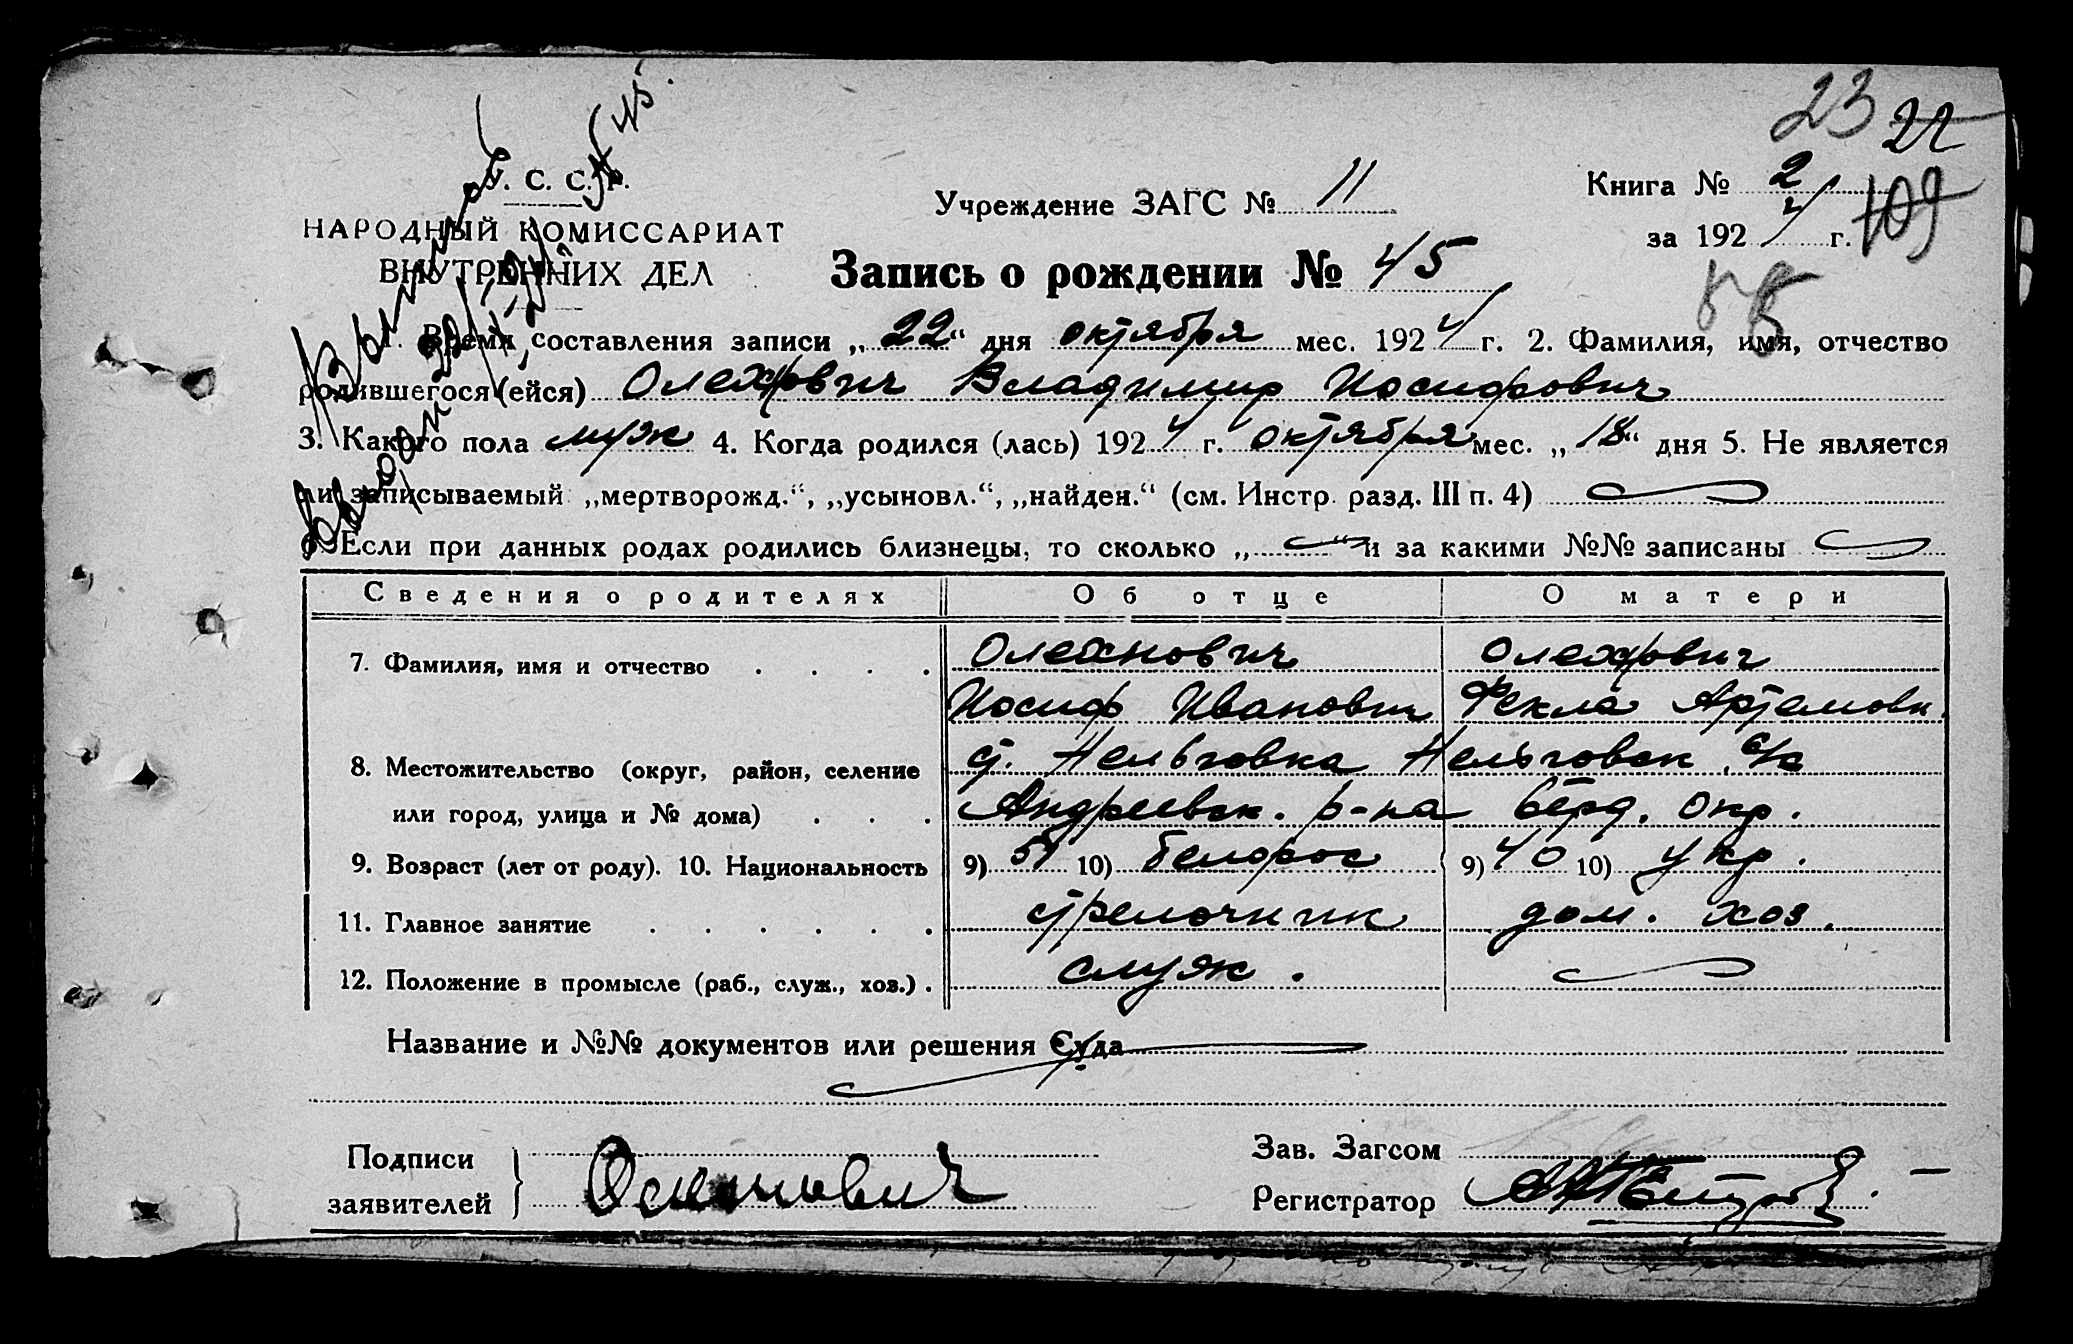 23 22
У. С. С. Р.
НАРОДНЫЙ КОМИССАРИАТ
ВНУТРЕННИХ ДЕЛ
Учреждение ЗАГС № 11
Книга № 2
за 1924 г.
109
Запись о рождении № 45
1. Время составления записи „22“ дня октября мес. 1924 г. 2. Фамилия, имя, отчество
родившегося (ейся) Олехнович Владимир Иосифович
3. Какого пола муж 4. Когда родился (лась) 1924 г. октября мес. „18“ дня 5. Не является
ли записываемый „мертворожд.“, „усыновл.“, „найден.“ (см. Инстр. разд. III п. 4)
6. Если при данных родах родились близнецы, то сколько „ “ и за какими №№ записаны
Сведения о родителях Об отце О матери
7. Фамилия, имя и отчество . . . . Олехнович Олехнович
Иосиф Иванович Фекла Артемовн.
8. Местожительство (округ, район, селение ст. Нельговка Нельговск. с/с
или город, улица и № дома) . . . Андреевск. р-на Берд. окр.
9. Возраст (лет от роду). 10. Национальность 9) 51 10) белорос 9) 40 10) укр.
11. Главное занятие . . . . . . стрелочник дом. хоз.
12. Положение в промысле (раб., служ., хоз.) . служ.
Название и №№ документов или решения Суда
Подписи
заявителей
Зав. Загсом
Регистратор